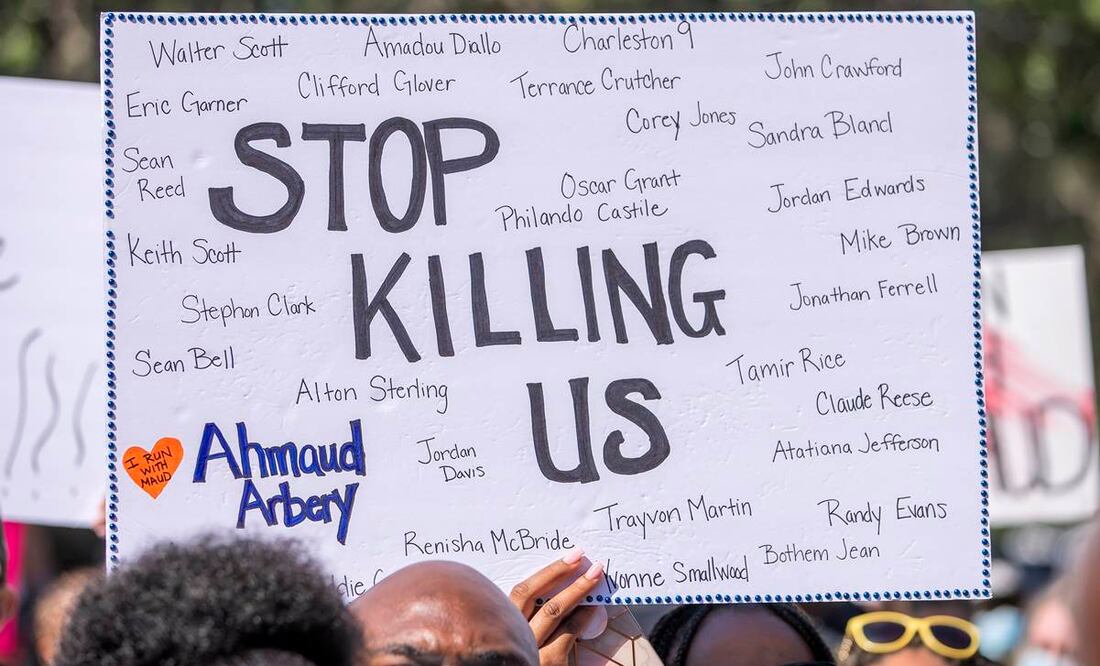 Walter Scott
Amadou Diallo
Charleston 9
Clifford Glover
Terrance Crutcher
John Crawford
Eric Garner
Corey Jones
Sandra Bland
STOP
Sean
Reed
Oscar Grant
Philando Castile
Jordan Edwards
Keith Scott
Mike Brown
KILLING
Stephon Clark
Jonathan Ferrell
Sean Bell
Tamir Rice
Alton Sterling
US
Claude Reese
I RUN
WITH
MAUD
Ahmaud
Arbery
Jordan
Davis
Atatiana Jefferson
Trayvon Martin
Randy Evans
Renisha McBride
Bothem Jean
Smallwood